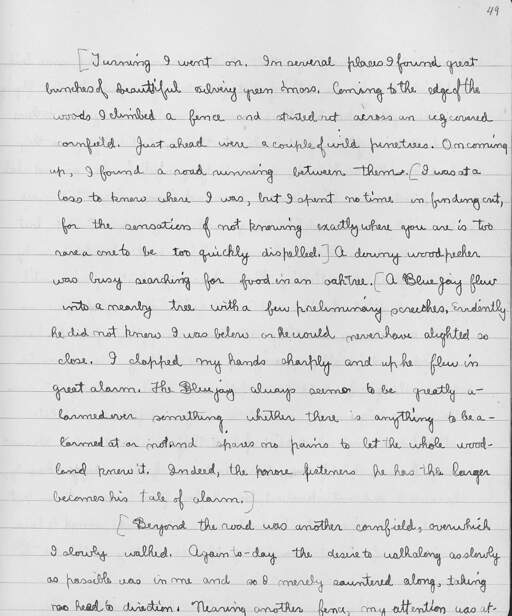 49
[Turning I went on. In several places I found great
bunches of beautiful silvery green moss. Coming to the edge of the
woods I climbed a fence and started out across an icy covered
cornfield. Just ahead were a couple of wild pinetrees. On coming
up, I found a road running between them. [I was at a
loss to know where I was, but I spent no time in finding out,
for the sensation of not knowing exactly where you are is too
rare a one to be too quickly dispelled.] A downy woodpecker
was busy searching for food in an oak tree. [A Blue Jay flew
into a nearby tree with a few preliminary screeches. Evidently
he did not know I was below or he would never have alighted so
close. I clapped my hands sharply and up he flew in
great alarm. The Bluejay always seems to be greatly a-
larmed over something whither there is anything to be a-
larmed at or not and spares no pains to let the whole wood-
land know it. Indeed, the more listeners he has the larger
becomes his tale of alarm.]
[Beyond the road was another cornfield, over which
I slowly walked. Again to-day the desire to walk along as slowly
as possible was in me and so I merely sauntered along, taking
no heed to direction. Nearing another fence, my attention was at-